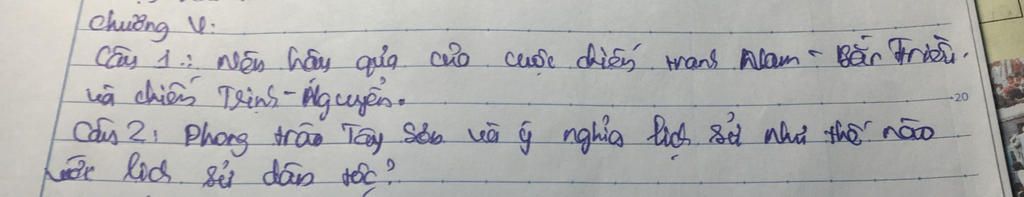 Chương V:
Câu 1: Nêu hậu quả của cuộc chiến tranh Nam - Bắn Triều.
và chiến Trịnh - Nguyễn.
Câu 2: Phong trào Tây Sơn và ý nghĩa lịch sử như thế nào
lịch sử dân tộc?
20